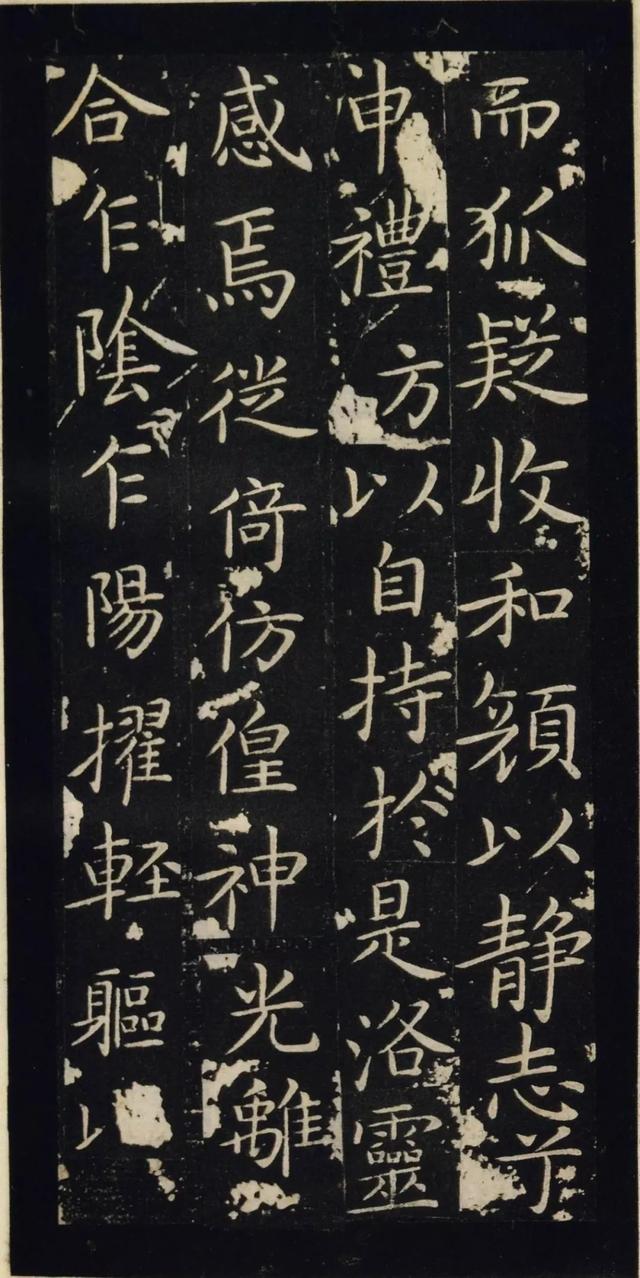 而狐疑收和顔以静志兮
申禮方以自持於是洛靈
感焉徙倚仿偟神光離
合乍陰乍陽擢輕軀以